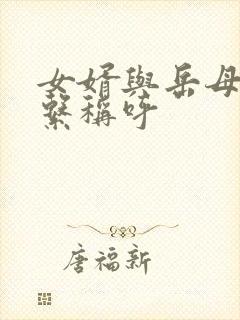 女婿與岳母
繫稱呼
唐福新